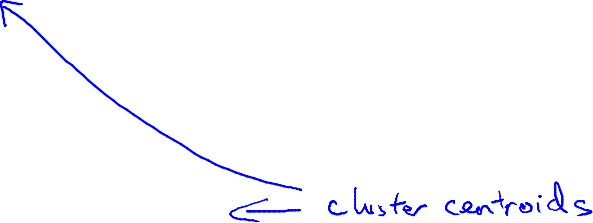 cluster centroids